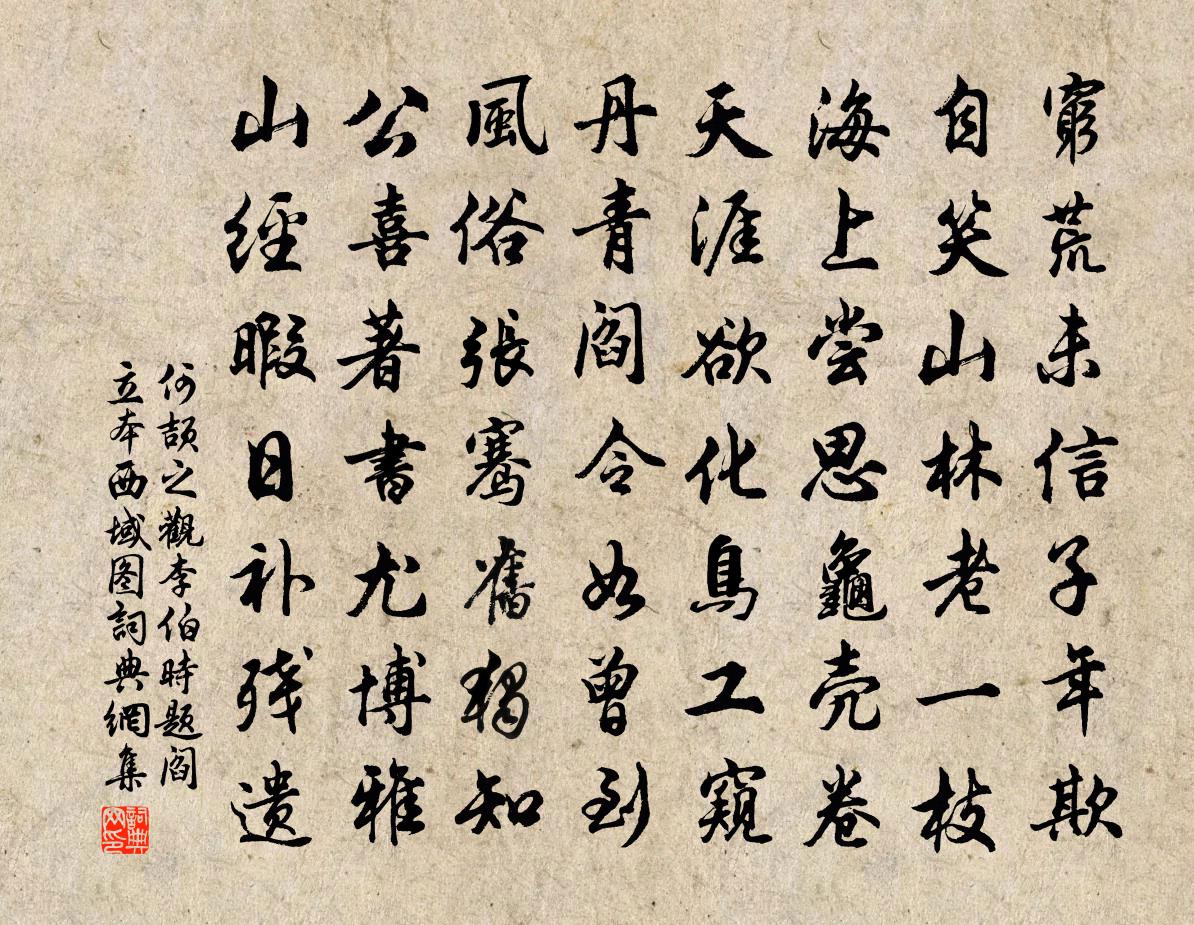 窮荒未信子年欺
自笑山林老一枝
海上尝思龜壳卷
天涯欲化鳥工窺
丹青阎令如曾到
風俗張騫舊獨知
公喜著書尤博雅
山經暇日补残遗
何頡之觀李伯時題阎
立本西域图詞典網集
詞典
网印